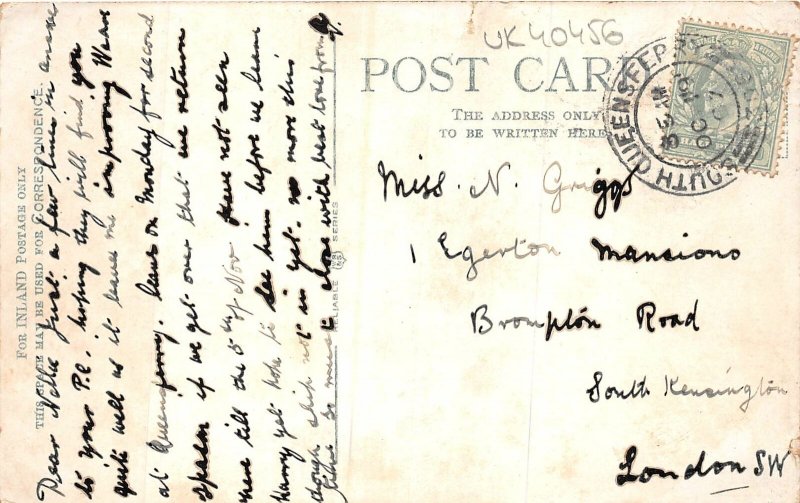 UK40456
POST CARD
THE ADDRESS ONLY
TO BE WRITTEN HERE
FOR INLAND POSTAGE ONLY
THIS SPACE MAY BE USED FOR CORRESPONDENCE.
RELIABLE SERIES
SOUTH QUEENSFERRY
Miss. N. Griggs
1 Egerton Mansions
Brompton Road
South Kensington
London SW
Dear Nellie Just a few lines in answer
to your P.C. hoping they will find you
quite well as it leaves me improving Weare
at Queensferry. leave on Monday for second
spasm if we get over that we return
here till the 5th of Nov have not seen
Harry yet hope to see him before we leave
though ship not in yet. no more this
time so must close with best love from